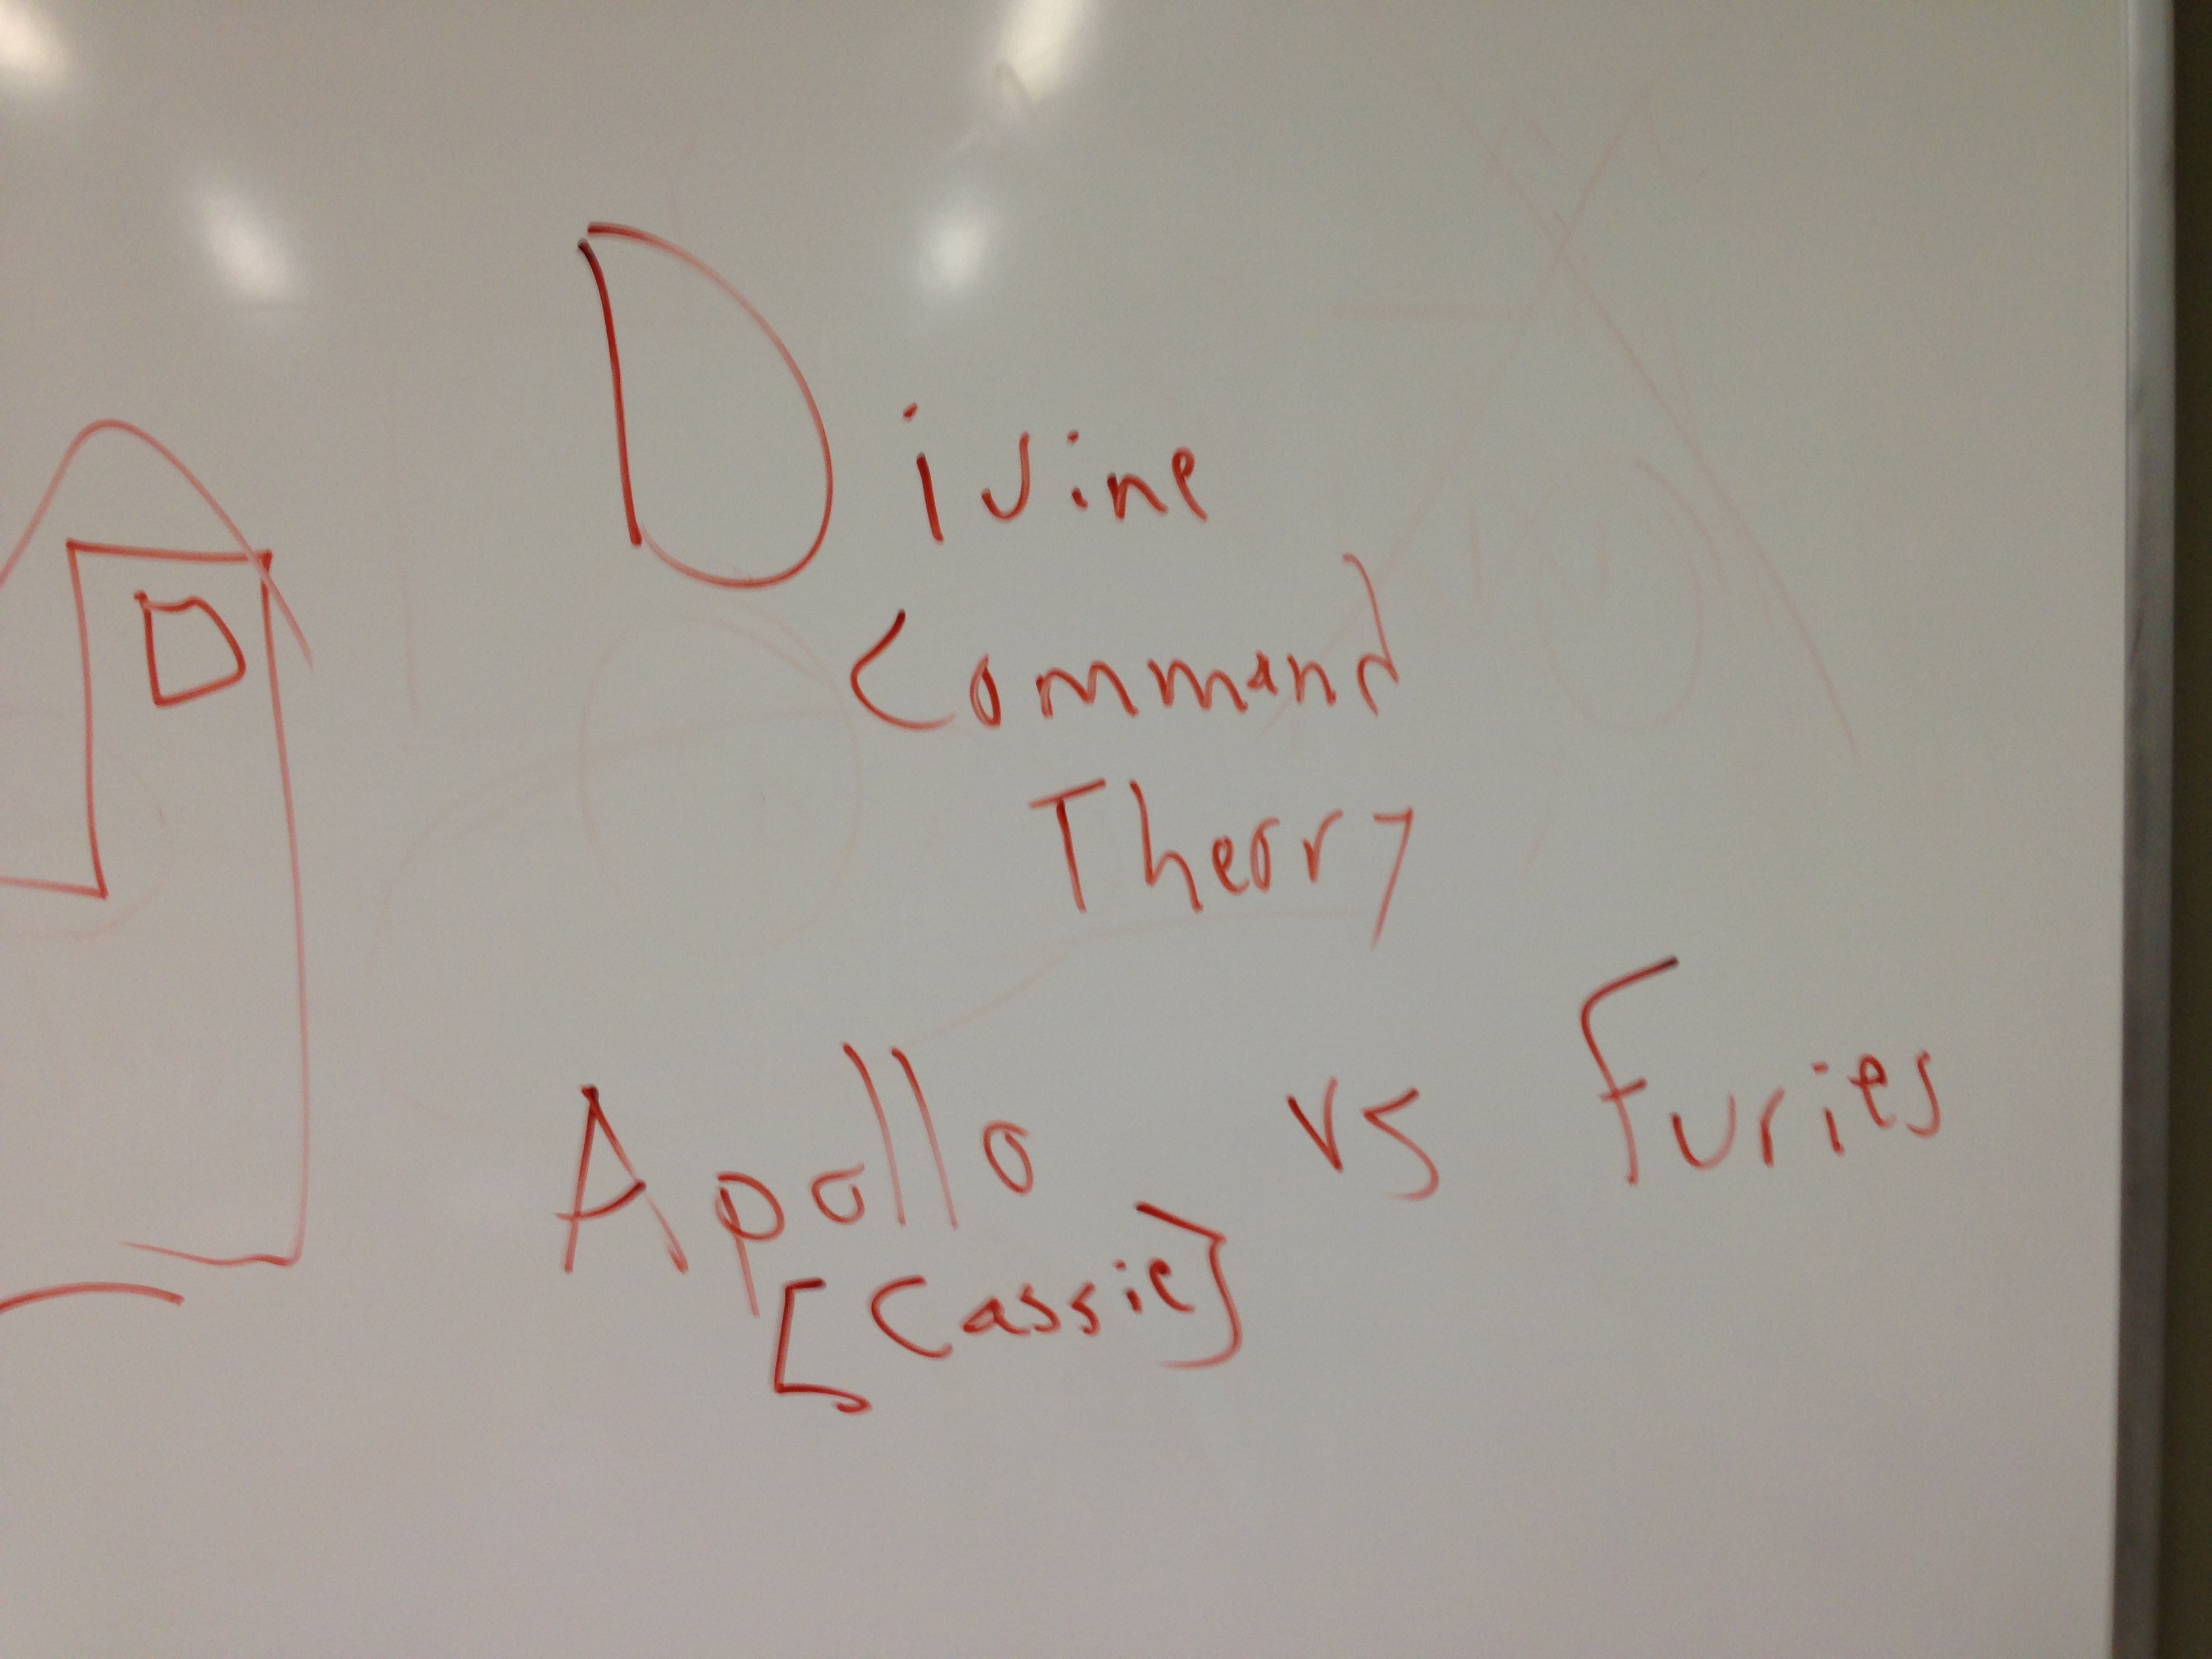 D
Divine
Command
Theory
Apollo vs Furies
[Cassie]